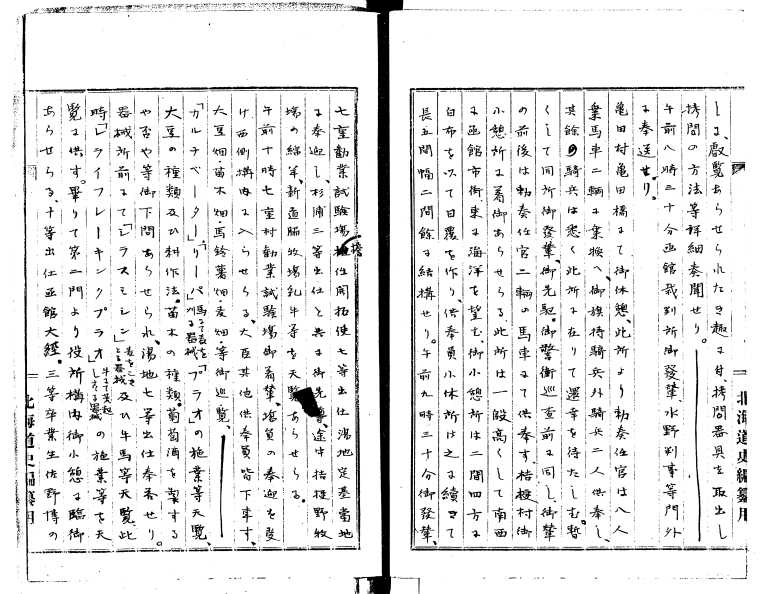 しに、叡覧あらせられたき趣に付、拷問器具を取出し
拷問の方法等詳細奏聞せり。
午前八時三十分函館裁判所御発輦、水野判事等門外
に奉送せり。
亀田村亀田橋にて御休憩、此所より勅奏任官は八人
乗馬車二輛に乗換へ、御旗持騎兵外騎兵二人供奉し、
其餘の騎兵は悉く此所に在りて還幸を待たしむ。暫
くして同所御発輦、御先駆御警衛巡査前に同し。御輦
の前後は勅奏任官二輛の馬車にて供奉す。桔梗村御
小憩所に着御あらせらる。此所は一段高くして南西
に函館市街東に海洋を望む。御小憩所は二間四方に
白布を以て日覆を作り、供奉員小休所は之に続きて
長五間幅二間餘に結構せり。午前九時三十分御発輦、
北海道史編纂用
七重勧業試験場担任開拓使七等出仕湯地定基当地
に奉迎し、杉浦三等出仕と共に御先導、途中桔梗野牧
場の綿羊、新道脇牧場乳牛等を天覧あらせらる。
午前十時七重村勧業試験場御着輦、場員の奉迎を受
け西側構内に入らせらる。大臣其他供奉員皆下車す。
大豆畑・苗木畑・馬鈴薯畑・麦畑・等御巡覧、
「カルチベーター」「リーパ」「プラオ」の施業等天覧、
大豆の種類及び耕作法。苗木の種類。葡萄酒を製する
や否や等御下問あらせられ、湯地七等出仕奉答せり。
器械所前にて「ラスミシン」及び牛馬等天覧、此
時「レライフレーキングプラオ」の施業等を天
覧に供す。畢りて第二門より役所構内御小憩に臨御
あらせらる、十等出仕函館大経。三等卒業生佐野博の
北海道史編纂用